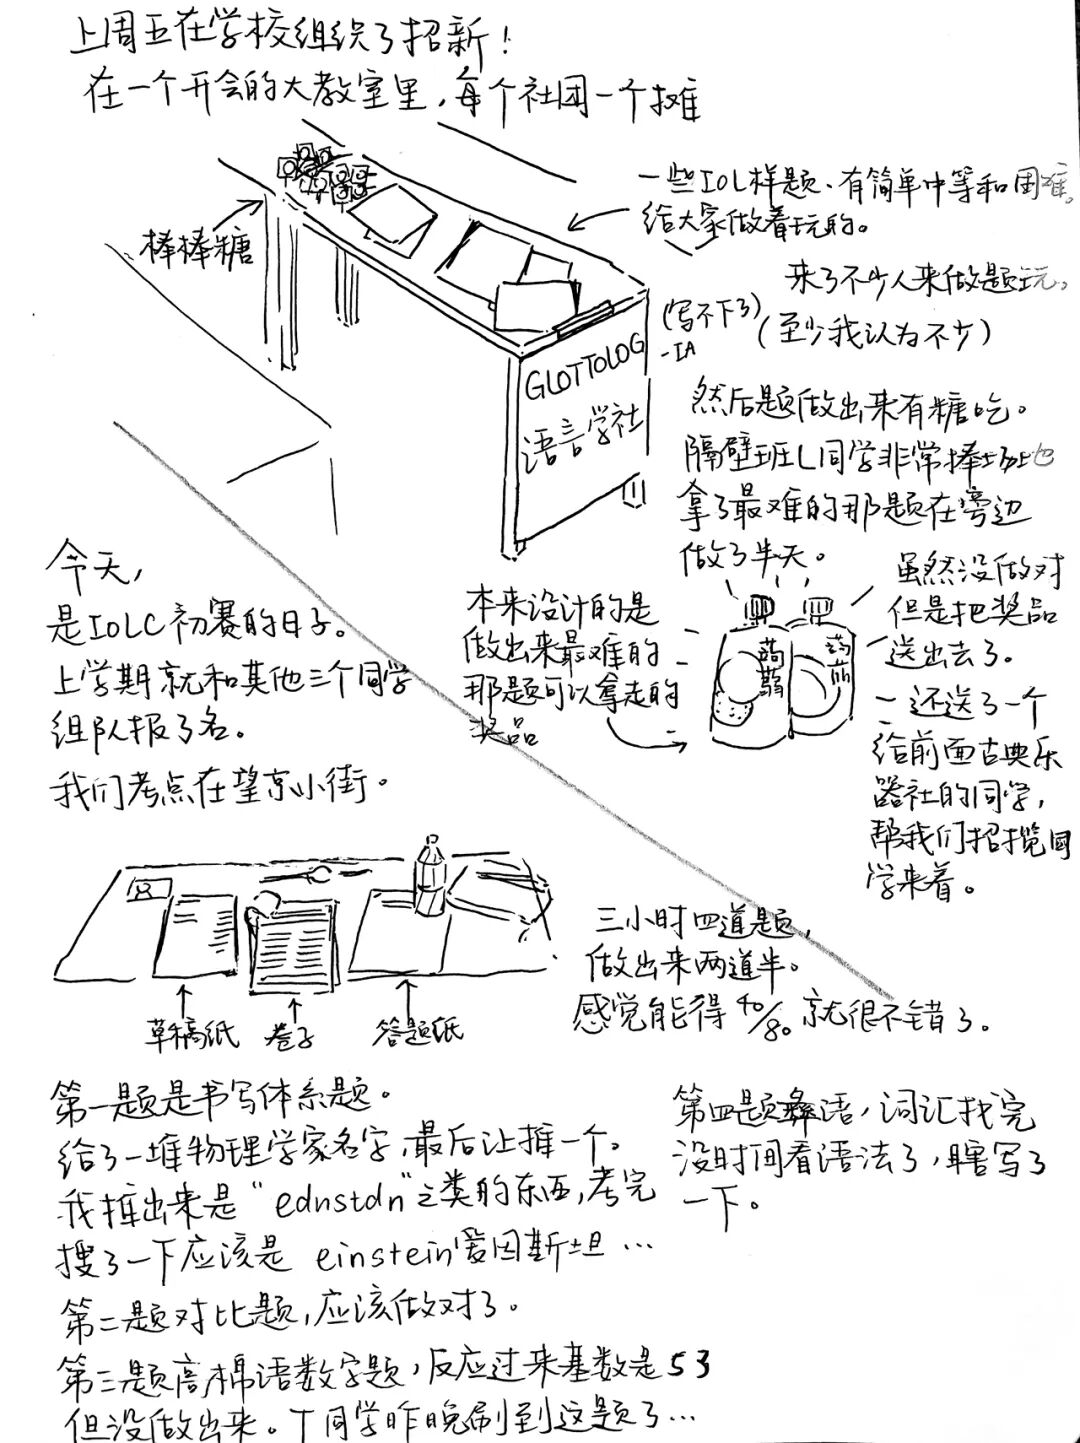 上周五在学校组织了招新！
在一个开会的大教室里，每个社团一个摊
棒棒糖
一些IOL样题、有简单中等和困难。
给大家做着玩的。
来了不少人来做题玩。
(至少我认为不少)
(写不下了)
-IA
GLOTTOLOG
语言学社
然后题做出来有糖吃。
隔壁班L同学非常捧场地
拿了最难的那题在旁边
做了半天。
虽然没做对
但是把奖品
送出去了。
本来设计的是
做出来最难的
那题可以拿走的
奖品
蒟蒻
蒟蒻
还送了一个
给前面古典乐
器社的同学，
帮我们招揽同
学来着。
今天，
是IOLC初赛的日子。
上学期就和其他三个同学
组队报了名。
我们考点在望京小街。
草稿纸
卷子
答题纸
三小时四道题，
做出来两道半。
感觉能得40/80就很不错了。
第一题是书写体系题。
给了一堆物理学家名字，最后让推一个。
我推出来是“ednstdn”之类的东西，考完
搜了一下应该是 einstein爱因斯坦…
第二题对比题，应该做对了。
第三题高棉语数字题，反应过来基数是53
但没做出来。T同学昨晚刷到这题了…
第四题彝语，词汇找完
没时间看语法了，瞎写了
一下。